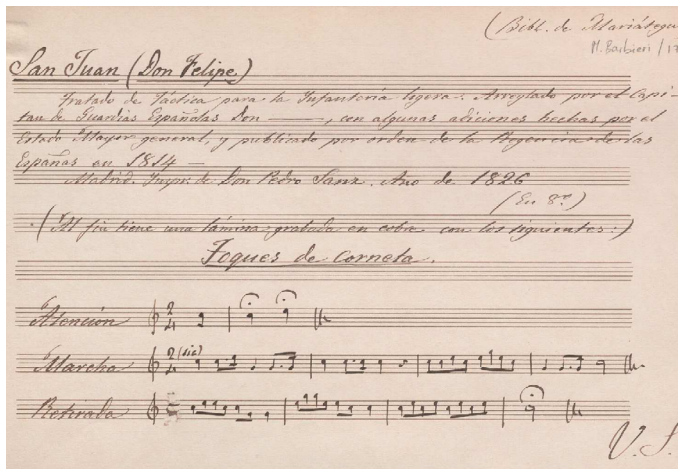 (Bibl. de Mariátegui
M. Barbieri / 17
San Juan (Don Felipe)
Tratado de Táctica para la Infantería ligera. Arreglado por el Capi-
tan de Guardias Españolas Don ———, con algunas adiciones hechas por el
Estado Mayor general, y publicado por orden de la Regencia de las
Españas en 1814 —
Madrid. Impr. de Don Pedro Sanz. Año de 1826
(En 8º)
(Al fin tiene una lámina grabada en cobre con los siguientes:)
Toques de Corneta.
Atención 2 4
Marcha 2 4 (sic)
Retirada
V. S.